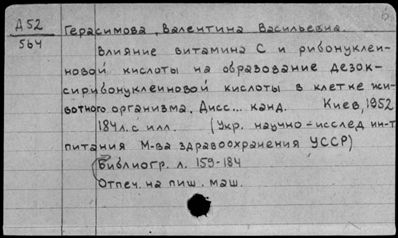 Д 52
564
Герасимова, Валентина Васильевна.
Влияние витамина С и рибонуклеи-
новой кислоты на образование дезок-
сирибонуклеиновой кислоты в клетке жи-
вотного организма. Дисс... канд. Киев, 1952
184 л. с илл. (Укр. научно-исслед ин-т
питания М-ва здравоохранения УССР)
Библиогр. л. 159-184
Отпеч. на пиш. маш.